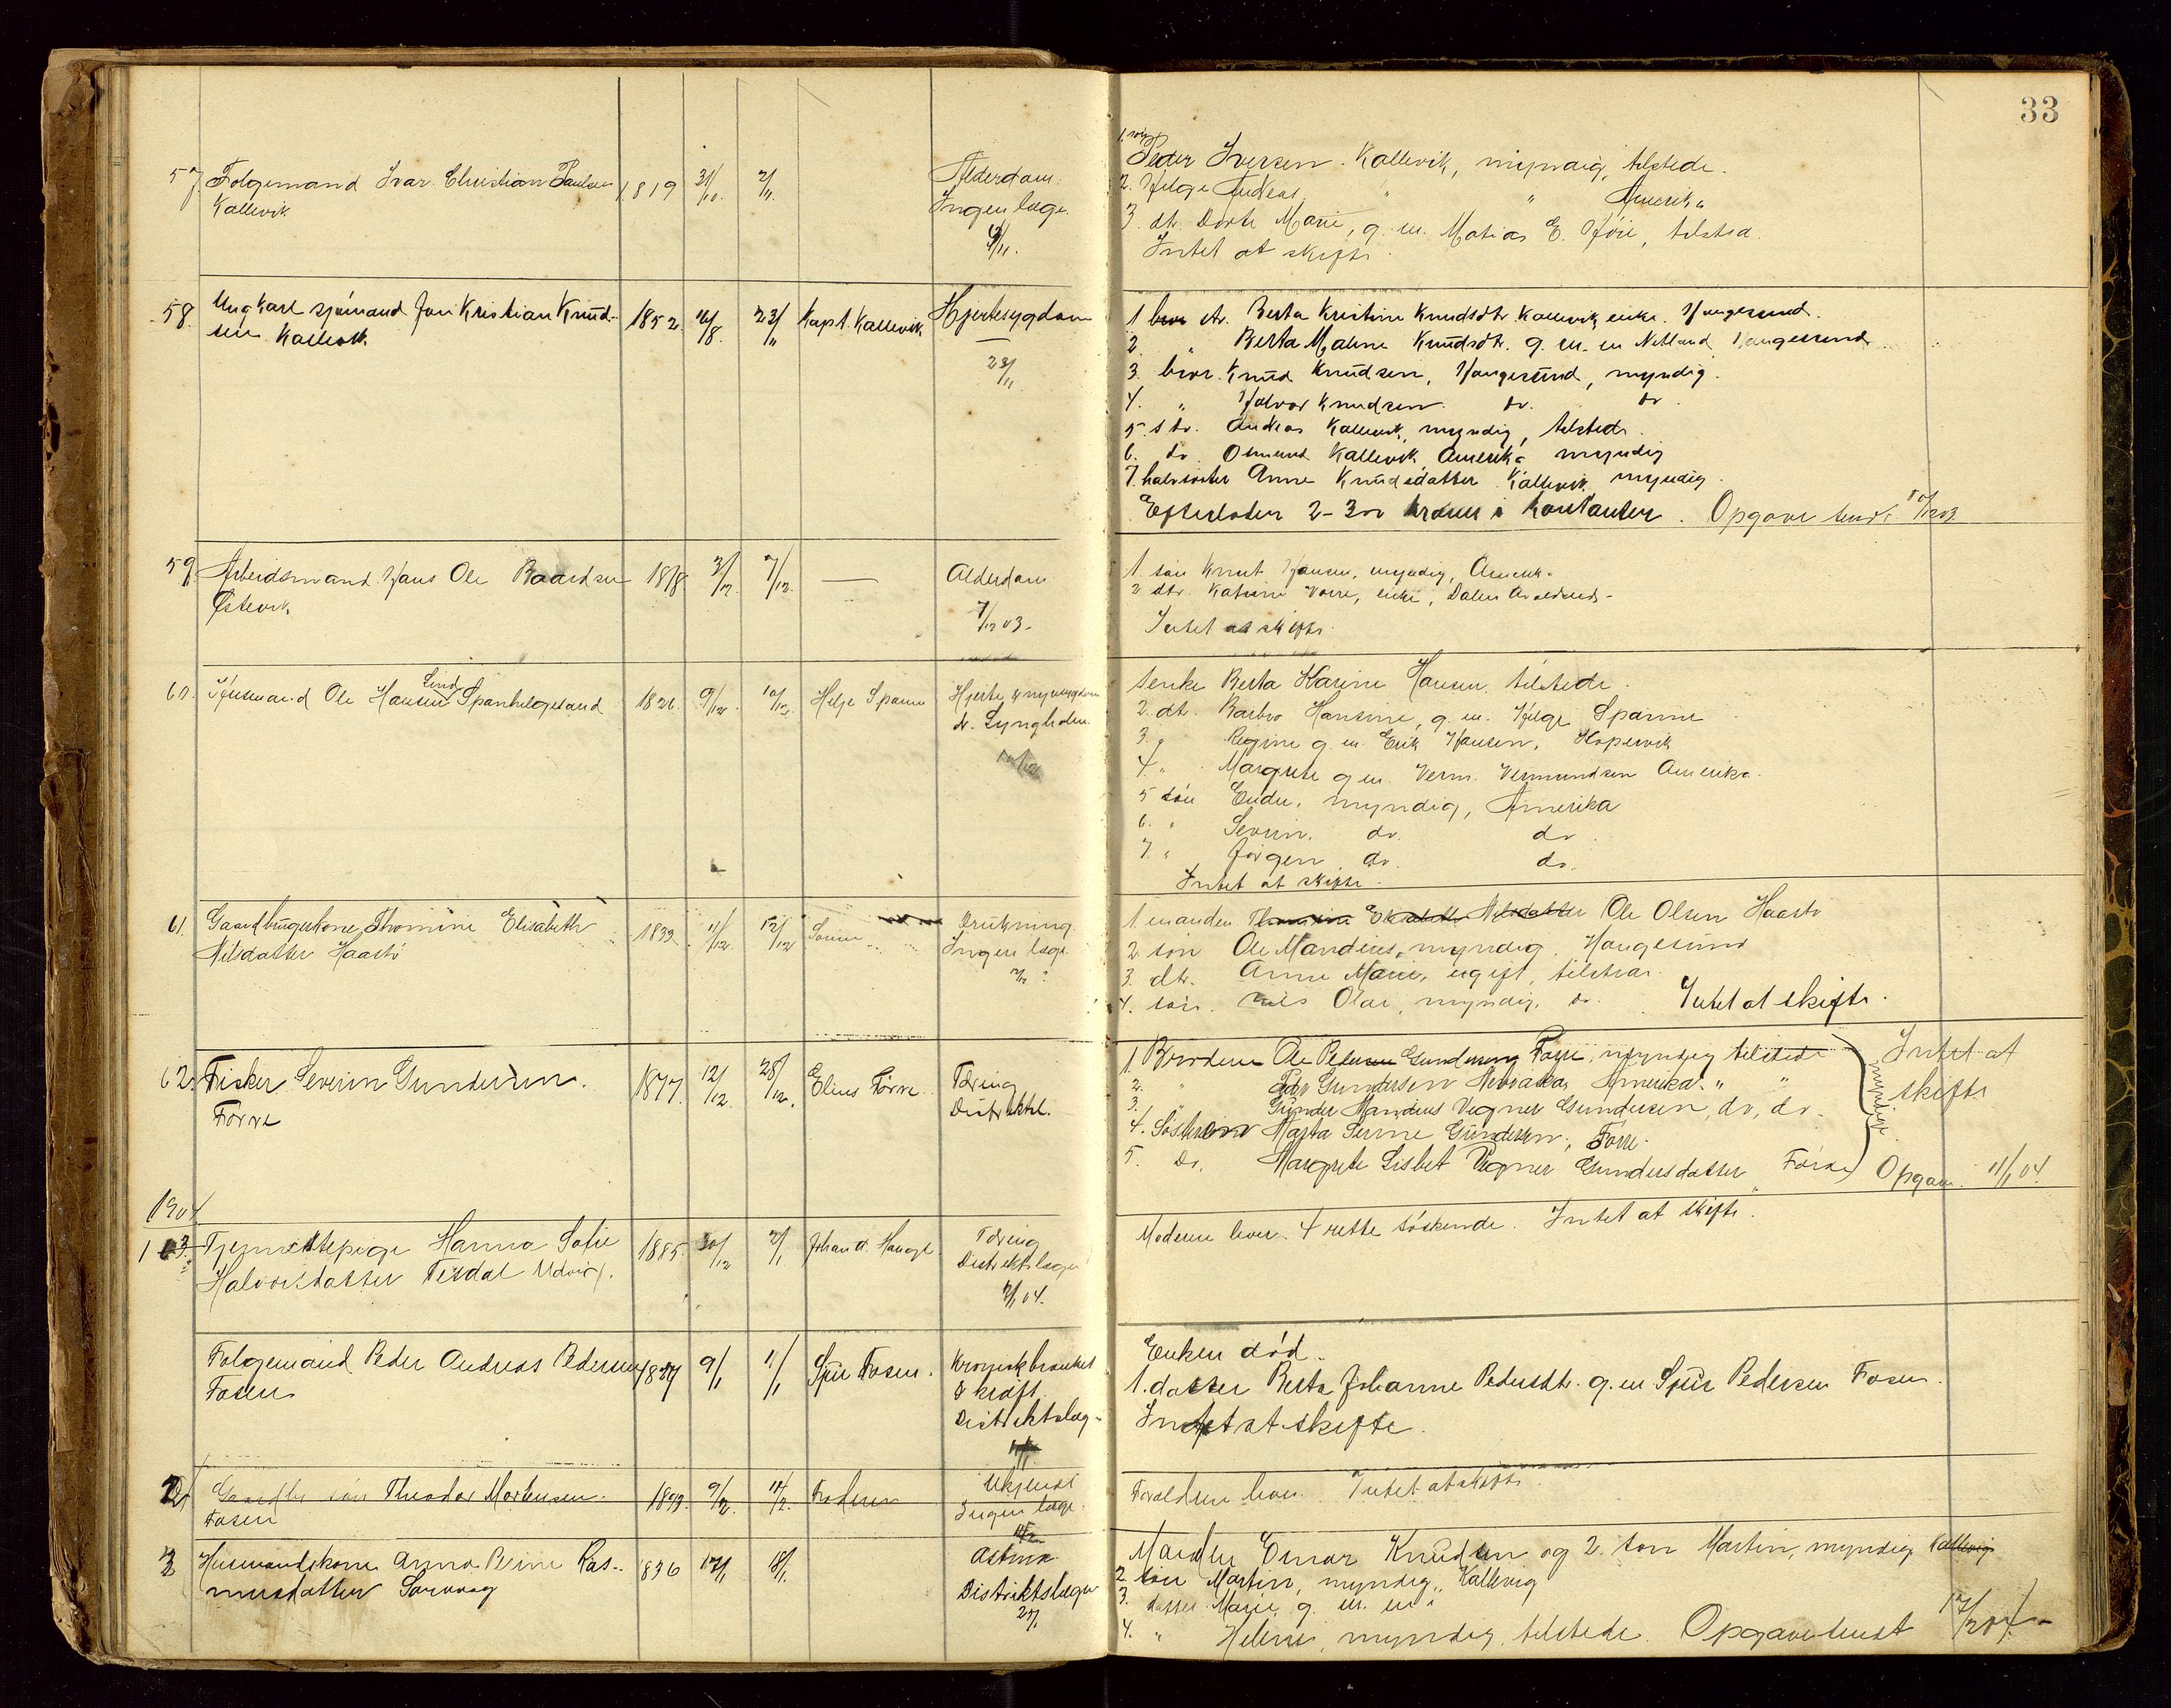 33
57. Folgemand Ivar Christian Paulsen
Kallevik
1819 31/10. 2/11.
Alderdom
Ingen læge.
1. søn
Peder Iversen Kallevik, myndig, tilstede.
2. Helge Andreas " " Amerika
3. dt. Dorte Marie, g. m. Matias E. , tilsted.
Intet at skifte
58. Ungkarl sjømand Jon Kristian Knud-
sen Kallevik
1852 16/8. 23/11 Kapt. Kallevik
Hjertesygdom
23/11.
1 str. Berta Kristine Knudsdtr. Kallevik, enke. Haugesund.
2. " Berta Maline Knudsdtr. g. m. en Netland Haugesund
3. bror. Knud Knudsen, Haugesund, myndig.
4. " Halvor Knudsen do. do
5. Andreas Kallevik, myndig, tilstede.
6. do Osmund Kallevik Amerika myndig
7. halvsøster Anne Knudsdatter Kallevik myndig.
Efterlader 2-300 kroner i kontanter. Opgave sendt
59. Arbeidsmand Hans Ole Baardsen
Østevik
1818 3/12. 7/12. —
Alderdom
7/12 03.
1. søn Knut Hansen, myndig, Amerika
2 dtr. Katrine, enke, Dalen Avaldsnes
Intet at skifte
60. Husmand Ole Hansen Spanhelgesand
1826. 9/12. 10/12. Helge Spanne
Hjerte &
dr. Lyngholm
1 enke Berta Karine Hansen. tilstede.
2. dt. Barbro Hansine, g. m. Helge Spanne
3. " Regine g. m. Erik Hansen, Kopervik
4. " Margrete g m. Verm. Vermundsen Amerika.
5 søn Endre, myndig, Amerika
6. " Severin. do. do
7. " Jørgen do. do.
Intet at skifte.
61. Gaardbrugerkone Thomine Elisabeth
Nilsdatter Haastø
1839. 11/12. 12/12
Drukning
Ingen læge
1. manden Thomine Elisabeth Nilsdatter Ole Olsen Haastø
2. søn Ole Mandius, myndig, Haugesund
3. dtr. Anne Marie, ugift, tilstede.
4. søn. Nils Olai, myndig, do. Intet at skifte.
62. Fisker Severin Gundersen.
Førre
1877. 12/12. 28/12. Elius Førre.
Tæring
Distriktsl.
1. Broderen Ole Pedersen Gundersen Førre, myndig tilstede
2. " Peder Gundersen Nebraska, Amerika " "
3. " Gunder Mandius Vegner Gundersen, do, do.
4. Søsteren Marta Serine Gundersen, Førre.
5. Do. Margrete Lisbet Vegner Gundersdatter Førre
myndige
Intet at
skifte
Opgave 11/1 04.
1904
1 63. Tjenestepige Hanna Sofie
Halvorsdatter Tisdal Udvik.
1885. 30/12 2/1 Johan A. Hauge.
Tæring
Distriktslægen
2/1 04.
Moderen lever. 4 rette søskende. Intet at skifte.
Folgemand Peder Andreas Pedersen
Fosen
1827 9/1 11/1 Sjur Fosen.
Kronisk bronkit
& kræft
Distriktslæg-
Enken død.
1. datter Berta Johanne Pedersdtr. g. m. Sjur Pedersen Fosen.
Intet at skifte.
2 Gaardbr søn Theodor Mortensen.
Fosen
1899. 9/2. 11/2. Faderen
Ukjendt
Ingen læge.
Forældrene lever. Intet at skifte.
3 Husmandskone Anna Serine Ras-
musdatter Sørvaag
1836 17/1 18/1
Astma
Distriktslægen
27/1
Manden Einar Knudsen og 2. søn Martin, myndig Kallevig
2. søn Martin, myndig, Kallevig
3. datter Marie, g. m. en
4. " Helene, myndig, tilstede. Opgave sendt